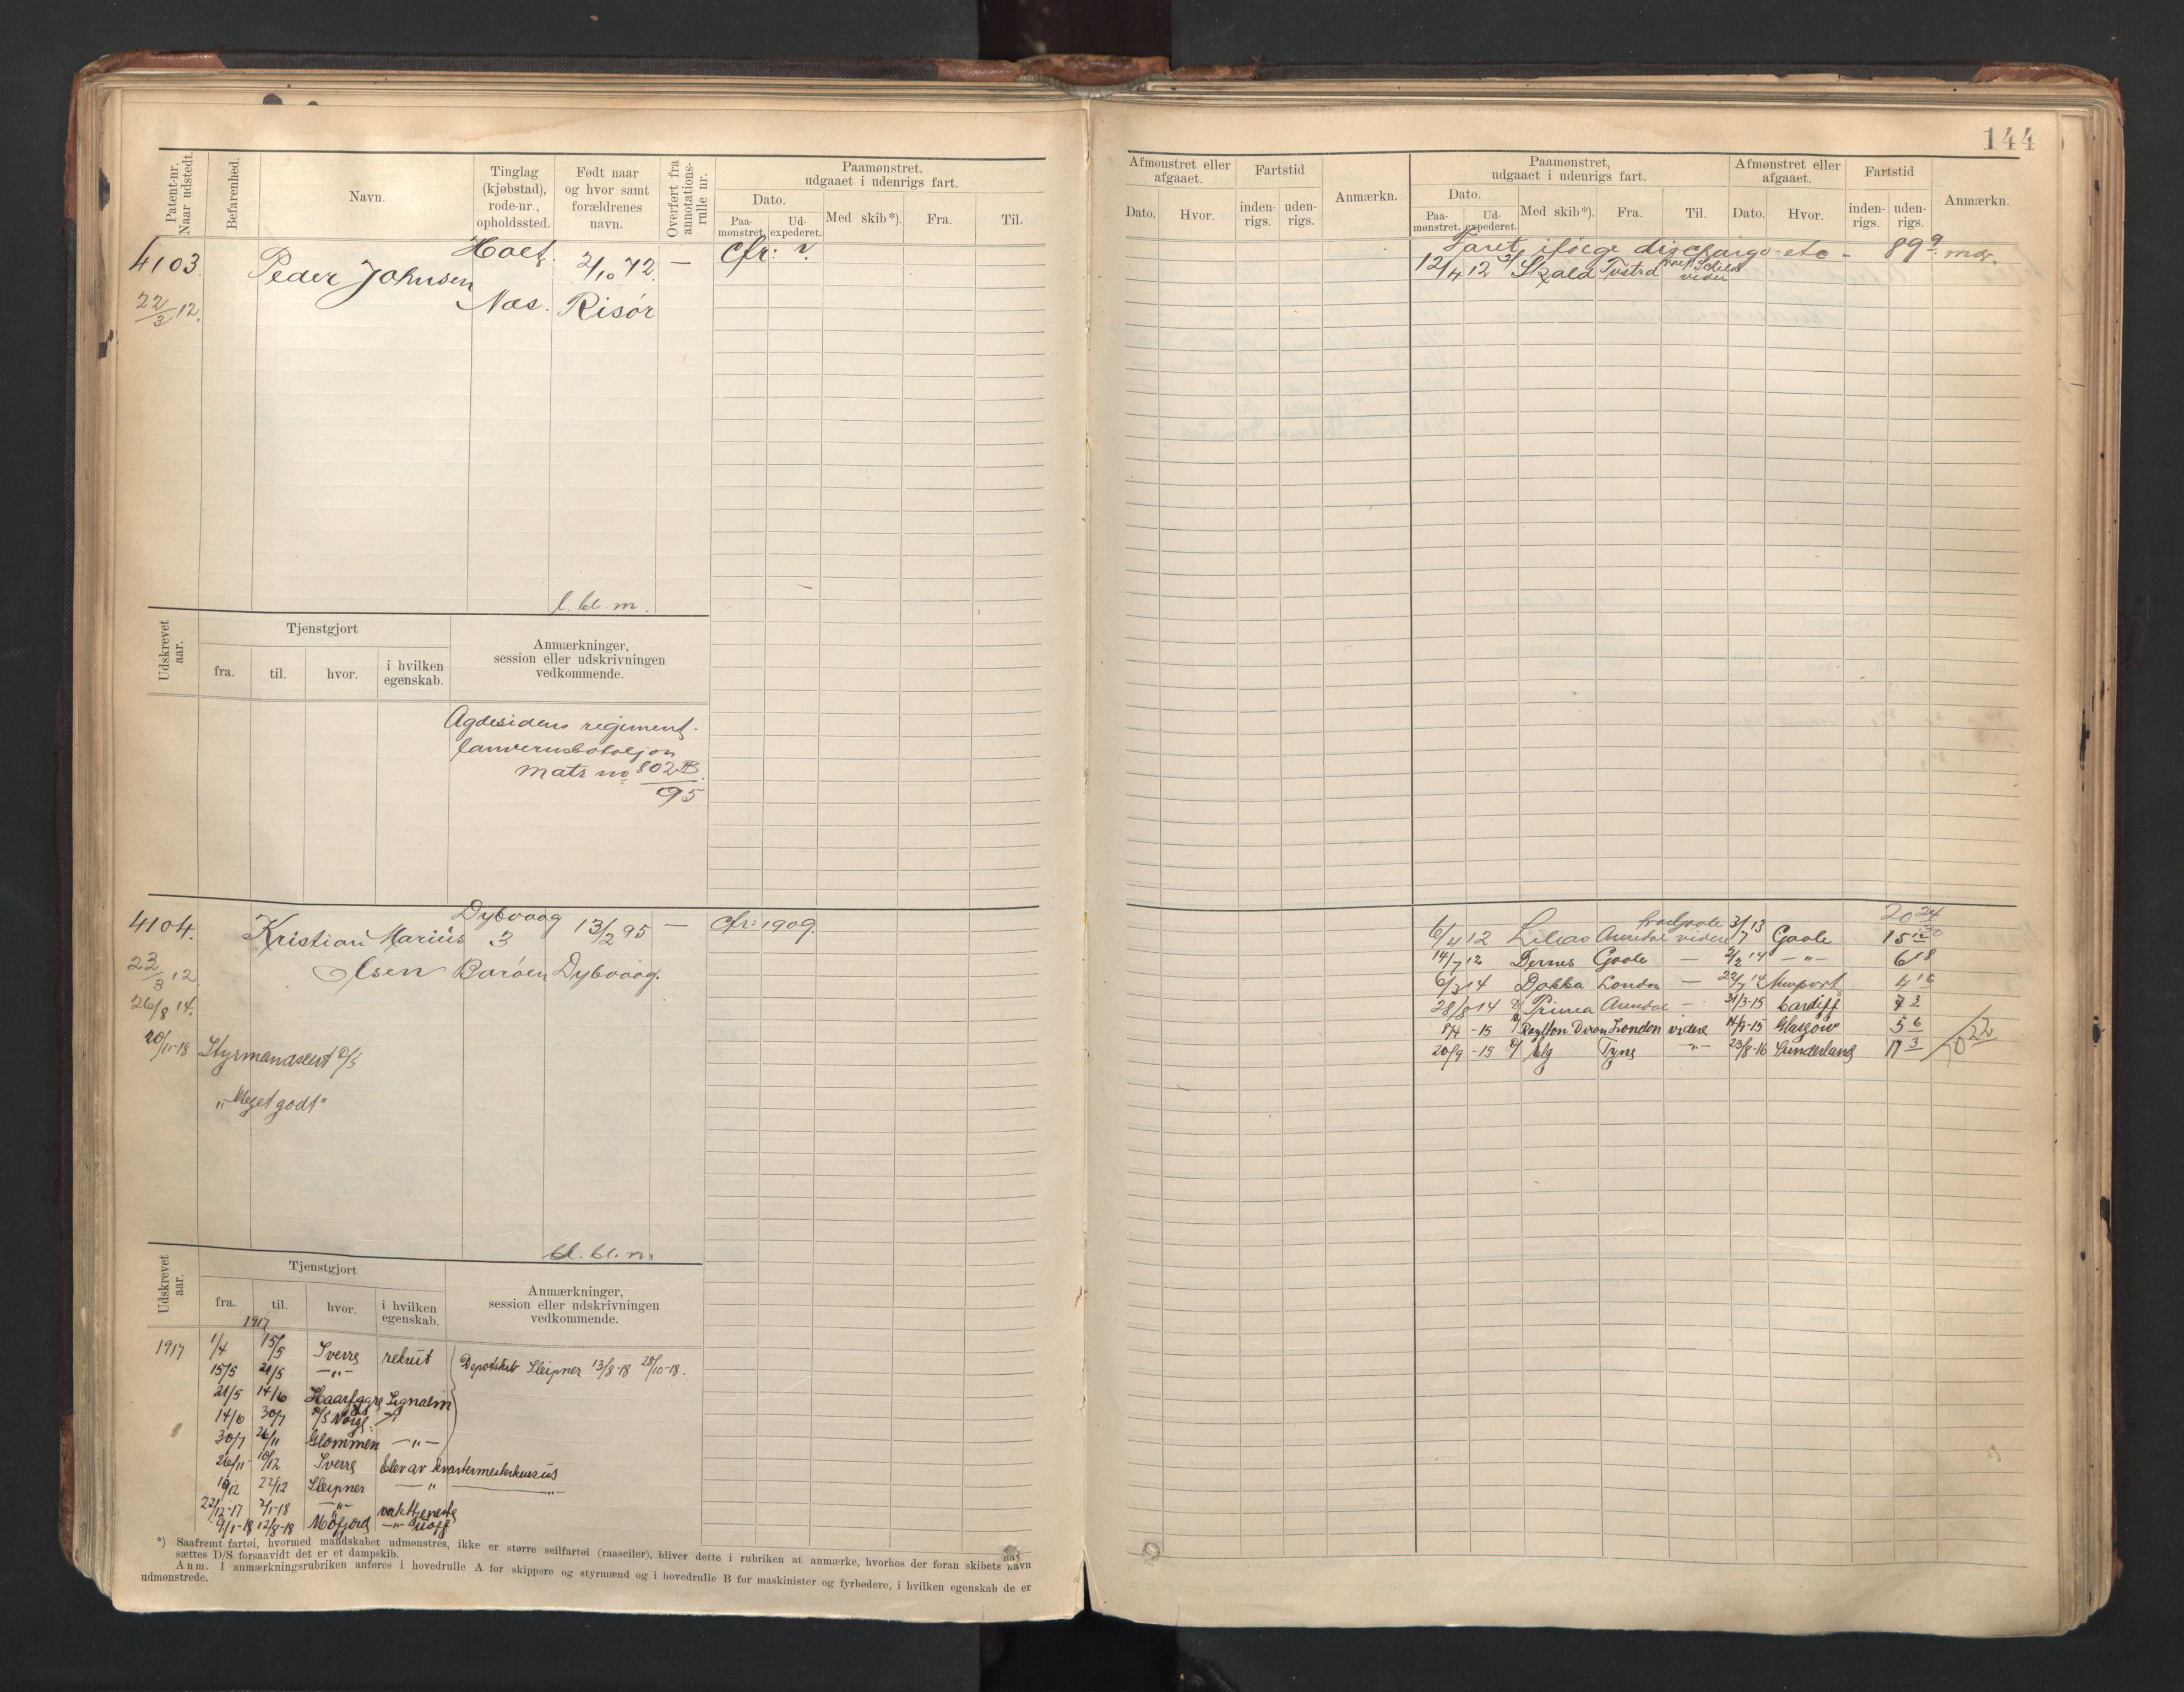 144
Patent-nr. Naar udstedt.
Befarenhed.
Navn.
Tinglag (kjøbstad), rode-nr., opholdssted.
Født naar og hvor samt forældrenes navn.
Overført fra annotationsrulle nr.
Paamønstret, udgaaet i udenrigs fart.
Dato.
Paamønstret.
Udexpederet.
Med skib*).
Fra.
Til.
Afmønstret eller afgaaet.
Dato.
Hvor.
Fartstid
inden-rigs.
uden-rigs.
Anmærkn.
Paamønstret, udgaaet i udenrigs fart.
Dato.
Paamønstret.
Udexpederet.
Med skib*).
Fra.
Til.
Afmønstret eller afgaaet.
Dato.
Hvor.
Fartstid
inden-rigs.
uden-rigs.
Anmærkn.
4103.
22/3 12.
Peder Johnsen
Holt
Næs.
2/10 72.
Risør
—
cfr: v.
Faret ifølge discharge etc - 89 9 mdr.
12/4 12 Skald Tvstrd
l. bl. m.
Udskrevet aar.
Tjenstgjort
fra.
til.
hvor.
i hvilken egenskab.
Anmærkninger, session eller udskrivningen vedkommende.
Agdesidens regiment.
lanvernsbataljon
matr no 802 B.
95
4104.
23/3 12
26/8 14.
20/11-18
Kristian Marius
Olsen
Dybvaag
3
Barøen
13/2 95
Dybvaag.
—
cfr: 1909.
Styrmandscert
„Meget godt"
20 24
6/4 12 Lilias Arendal videre 3/7 13 Goole 15
14/7 12 Dernes Goole — 2/2 14 —"— 6 18
6/3 14 Dokka London — 22/7 14 Newport 4 16
28/8 14 Prima Arendal - 31/3-15 Cardiff 7 3
8/4 -15 Raylton Dixon London videre 14/9-15 Glasgow 5 6
20/9 -15 Elg Tyne —"— 23/8-16 Sunderland 11 3
bl. bl. m.
Udskrevet aar.
Tjenstgjort
fra.
til.
hvor.
i hvilken egenskab.
Anmærkninger, session eller udskrivningen vedkommende.
1917
1917 1/4 15/5 Sverre rekrut
15/5 21/5 —"—
Depotskib Sleipner 13/8-18 28/10-18.
21/5 14/6 Haarfagre Signalm
14/6 30/7 Norge
30/7 26/11 Glommen —"—
26/11 10/12 Sverre elev av kvartermesterkursus
10/12 22/12 Sleipner —"—
22/12-17 9/1-18 —"— vakttjeneste
9/1-18 12/8-18 Mofjord —"—
*) Saafremt fartøi, hvormed mandskabet udmønstres, ikke er større seilfartøi (raaseiler), bliver dette i rubriken at anmærke, hvorhos der foran skibets navn
sættes D/S forsaavidt det er et dampskib.
Anm. I anmærkningsrubriken anføres i hovedrulle A for skippere og styrmænd og i hovedrulle B for maskinister og fyrbødere, i hvilken egenskab de er
udmønstrede.